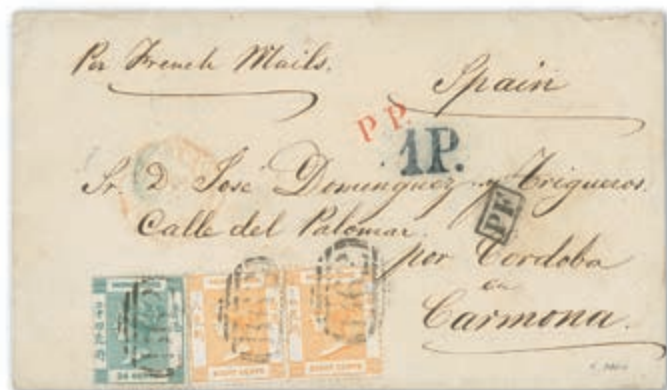 Per French Mails.
Spain
P.P.
1P.
Sr. D. José Dominguez y Trigueros.
Calle del Palomar.
PF
por Cordoba
en
Carmona.
B62
B62
B62
24 CENTS
EIGHT CENTS
EIGHT CENTS